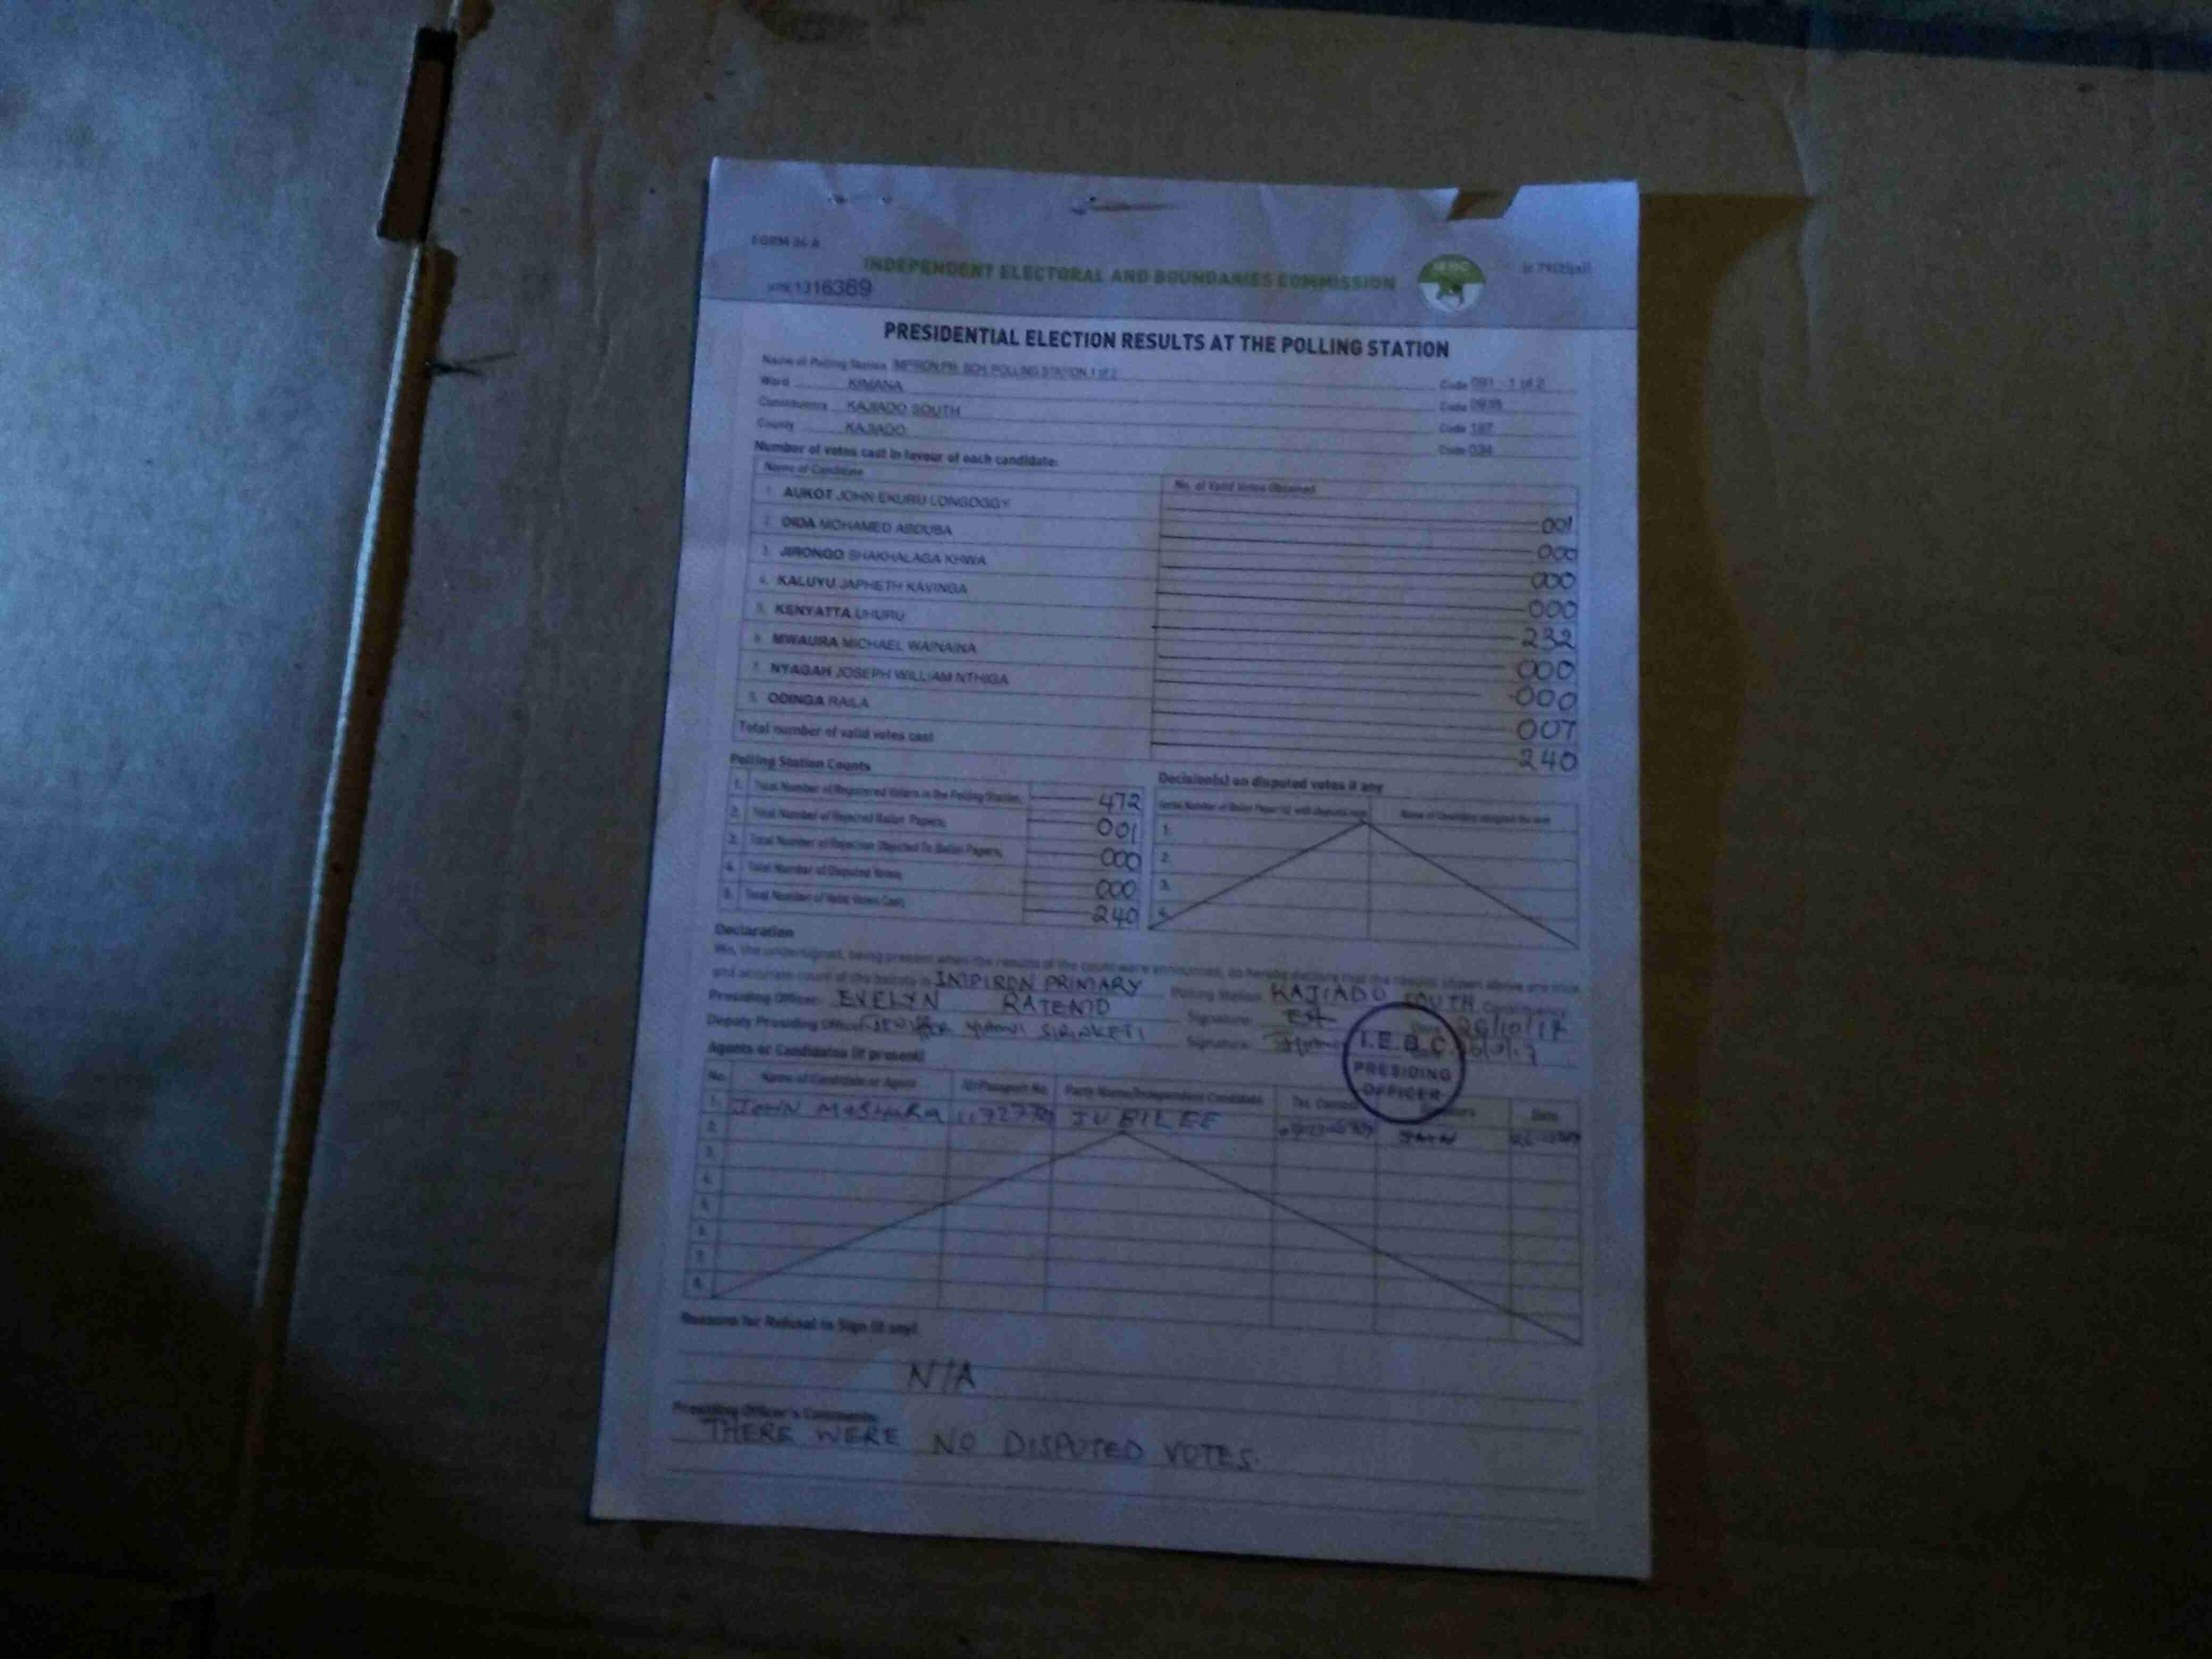 FORM 34 A
INDEPENDENT ELECTORAL AND BOUNDARIES COMMISSION
1316369
PRESIDENTIAL ELECTION RESULTS AT THE POLLING STATION
Name of Polling Station PRI. SCH. POLLING STATION 1 of 2 Code 091 - 1 of 2
Ward KIMANA Code
Constituency KAJIADO SOUTH Code 187
County KAJIADO Code 034
Number of votes cast in favour of each candidate:
Name of Candidate No. of Valid Votes Obtained
1. AUKOT JOHN EKURU LONGOGGY 001
2. DIDA MOHAMED ABDUBA 000
3. JIRONGO SHAKHALAGA KHWA 000
4. KALUYU JAPHETH KAVINGA 000
5. KENYATTA UHURU 232
6. MWAURA MICHAEL WAINAINA 000
7. NYAGAH JOSEPH WILLIAM NTHIGA 000
8. ODINGA RAILA 007
Total number of valid votes cast 240
Polling Station Counts
1. Total Number of Registered Voters in the Polling Station 472
2. Total Number of Rejected Ballot Papers 001
3. Total Number of Rejection Objected To Ballot Papers 000
4. Total Number of Disputed Votes 000
5. Total Number of Valid Votes Cast 240
Decision(s) on disputed votes if any
1.
2.
3.
4.
Declaration
We, the undersigned, being present when the results of the count were announced, do hereby declare that the results shown above are true
and accurate count of the ballots in INIPIRON PRIMARY Polling Station KAJIADO SOUTH Constituency
Presiding Officer: EVELYN RATEMO Signature: 26/10/17
Deputy Presiding Officer: Signature:
I.E.B.C.
PRESIDING
OFFICER
Agents or Candidates (if present)
No. Name of Candidate or Agent ID/Passport No. Party Name/Independent Candidate Date
1. JOHN JUBILEE
2.
3.
4.
5.
6.
7.
8.
Reasons for Refusal to Sign (if any)
N/A
Presiding Officer's Comments:
THERE WERE NO DISPUTED VOTES.